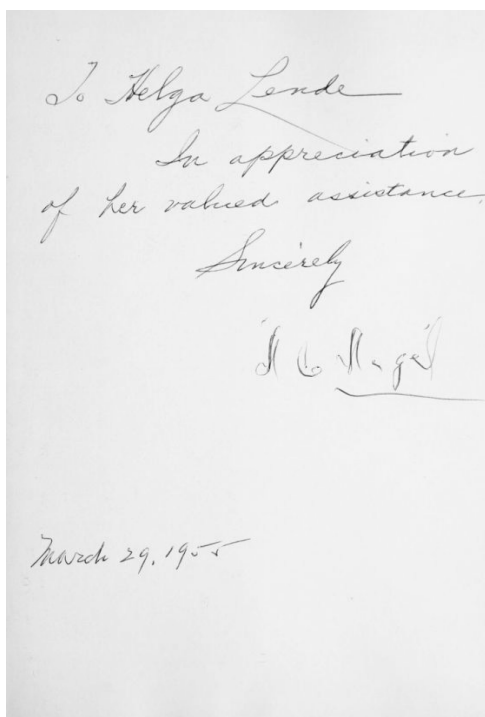 To Helga Lende
In appreciation
of her valued assistance.
Sincerely
March 29, 1955